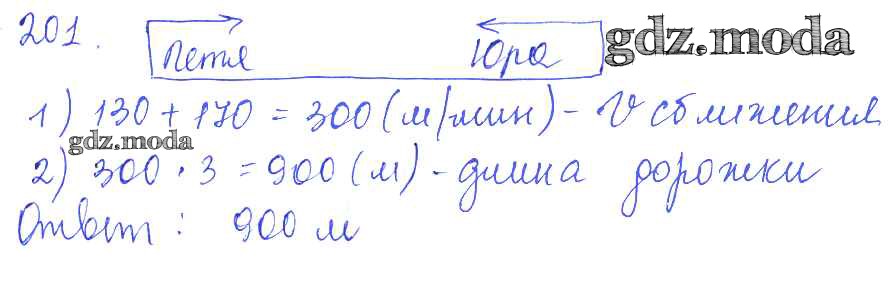 201.
Петя Юра gdz.moda
1) 130 + 170 = 300 (м/мин) - V сближения
gdz.moda
2) 300 · 3 = 900 (м) - длина дорожки
Ответ : 900 м